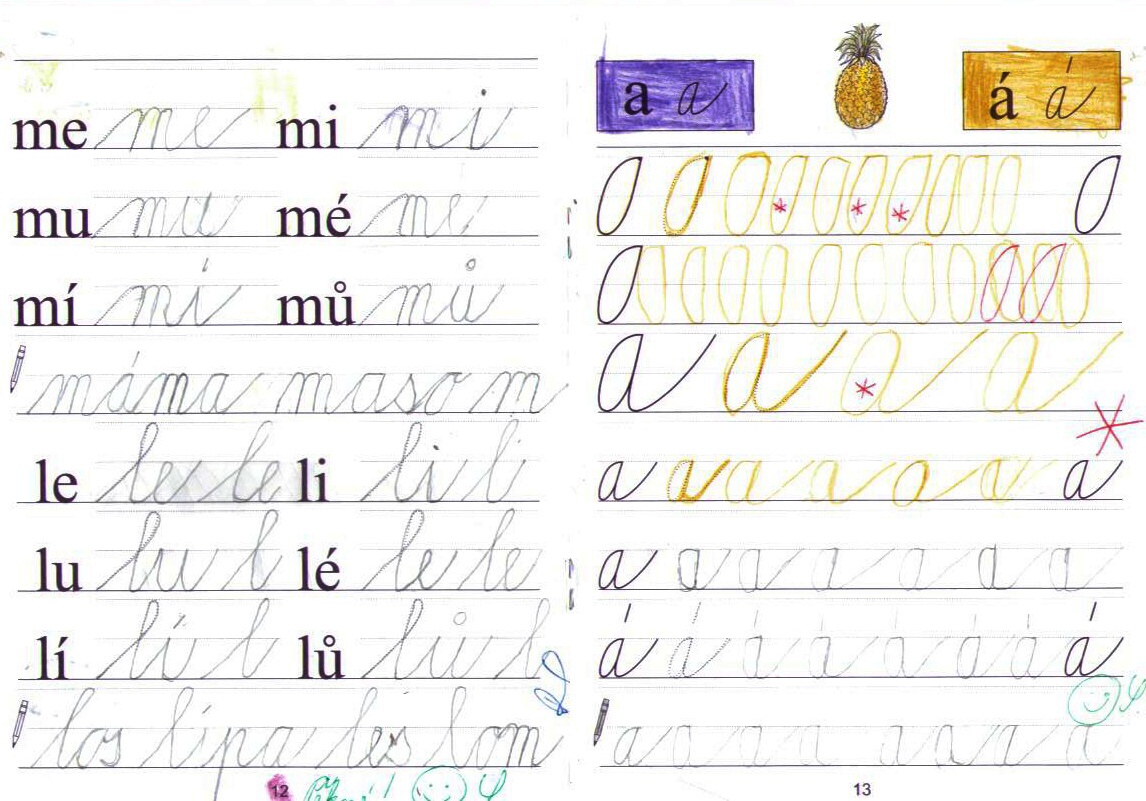 me me mi mi
mu mu mé me
mí mí mů mů
máma maso m
le le le li li l
lu lu l lé le le
lí lí l lů lů l
los lípa les lom
12 Pěkné!
a a á á
a a a a
a a a a a a a
a a a a a a a
á á á á á á á á
a a a a a a a a
13